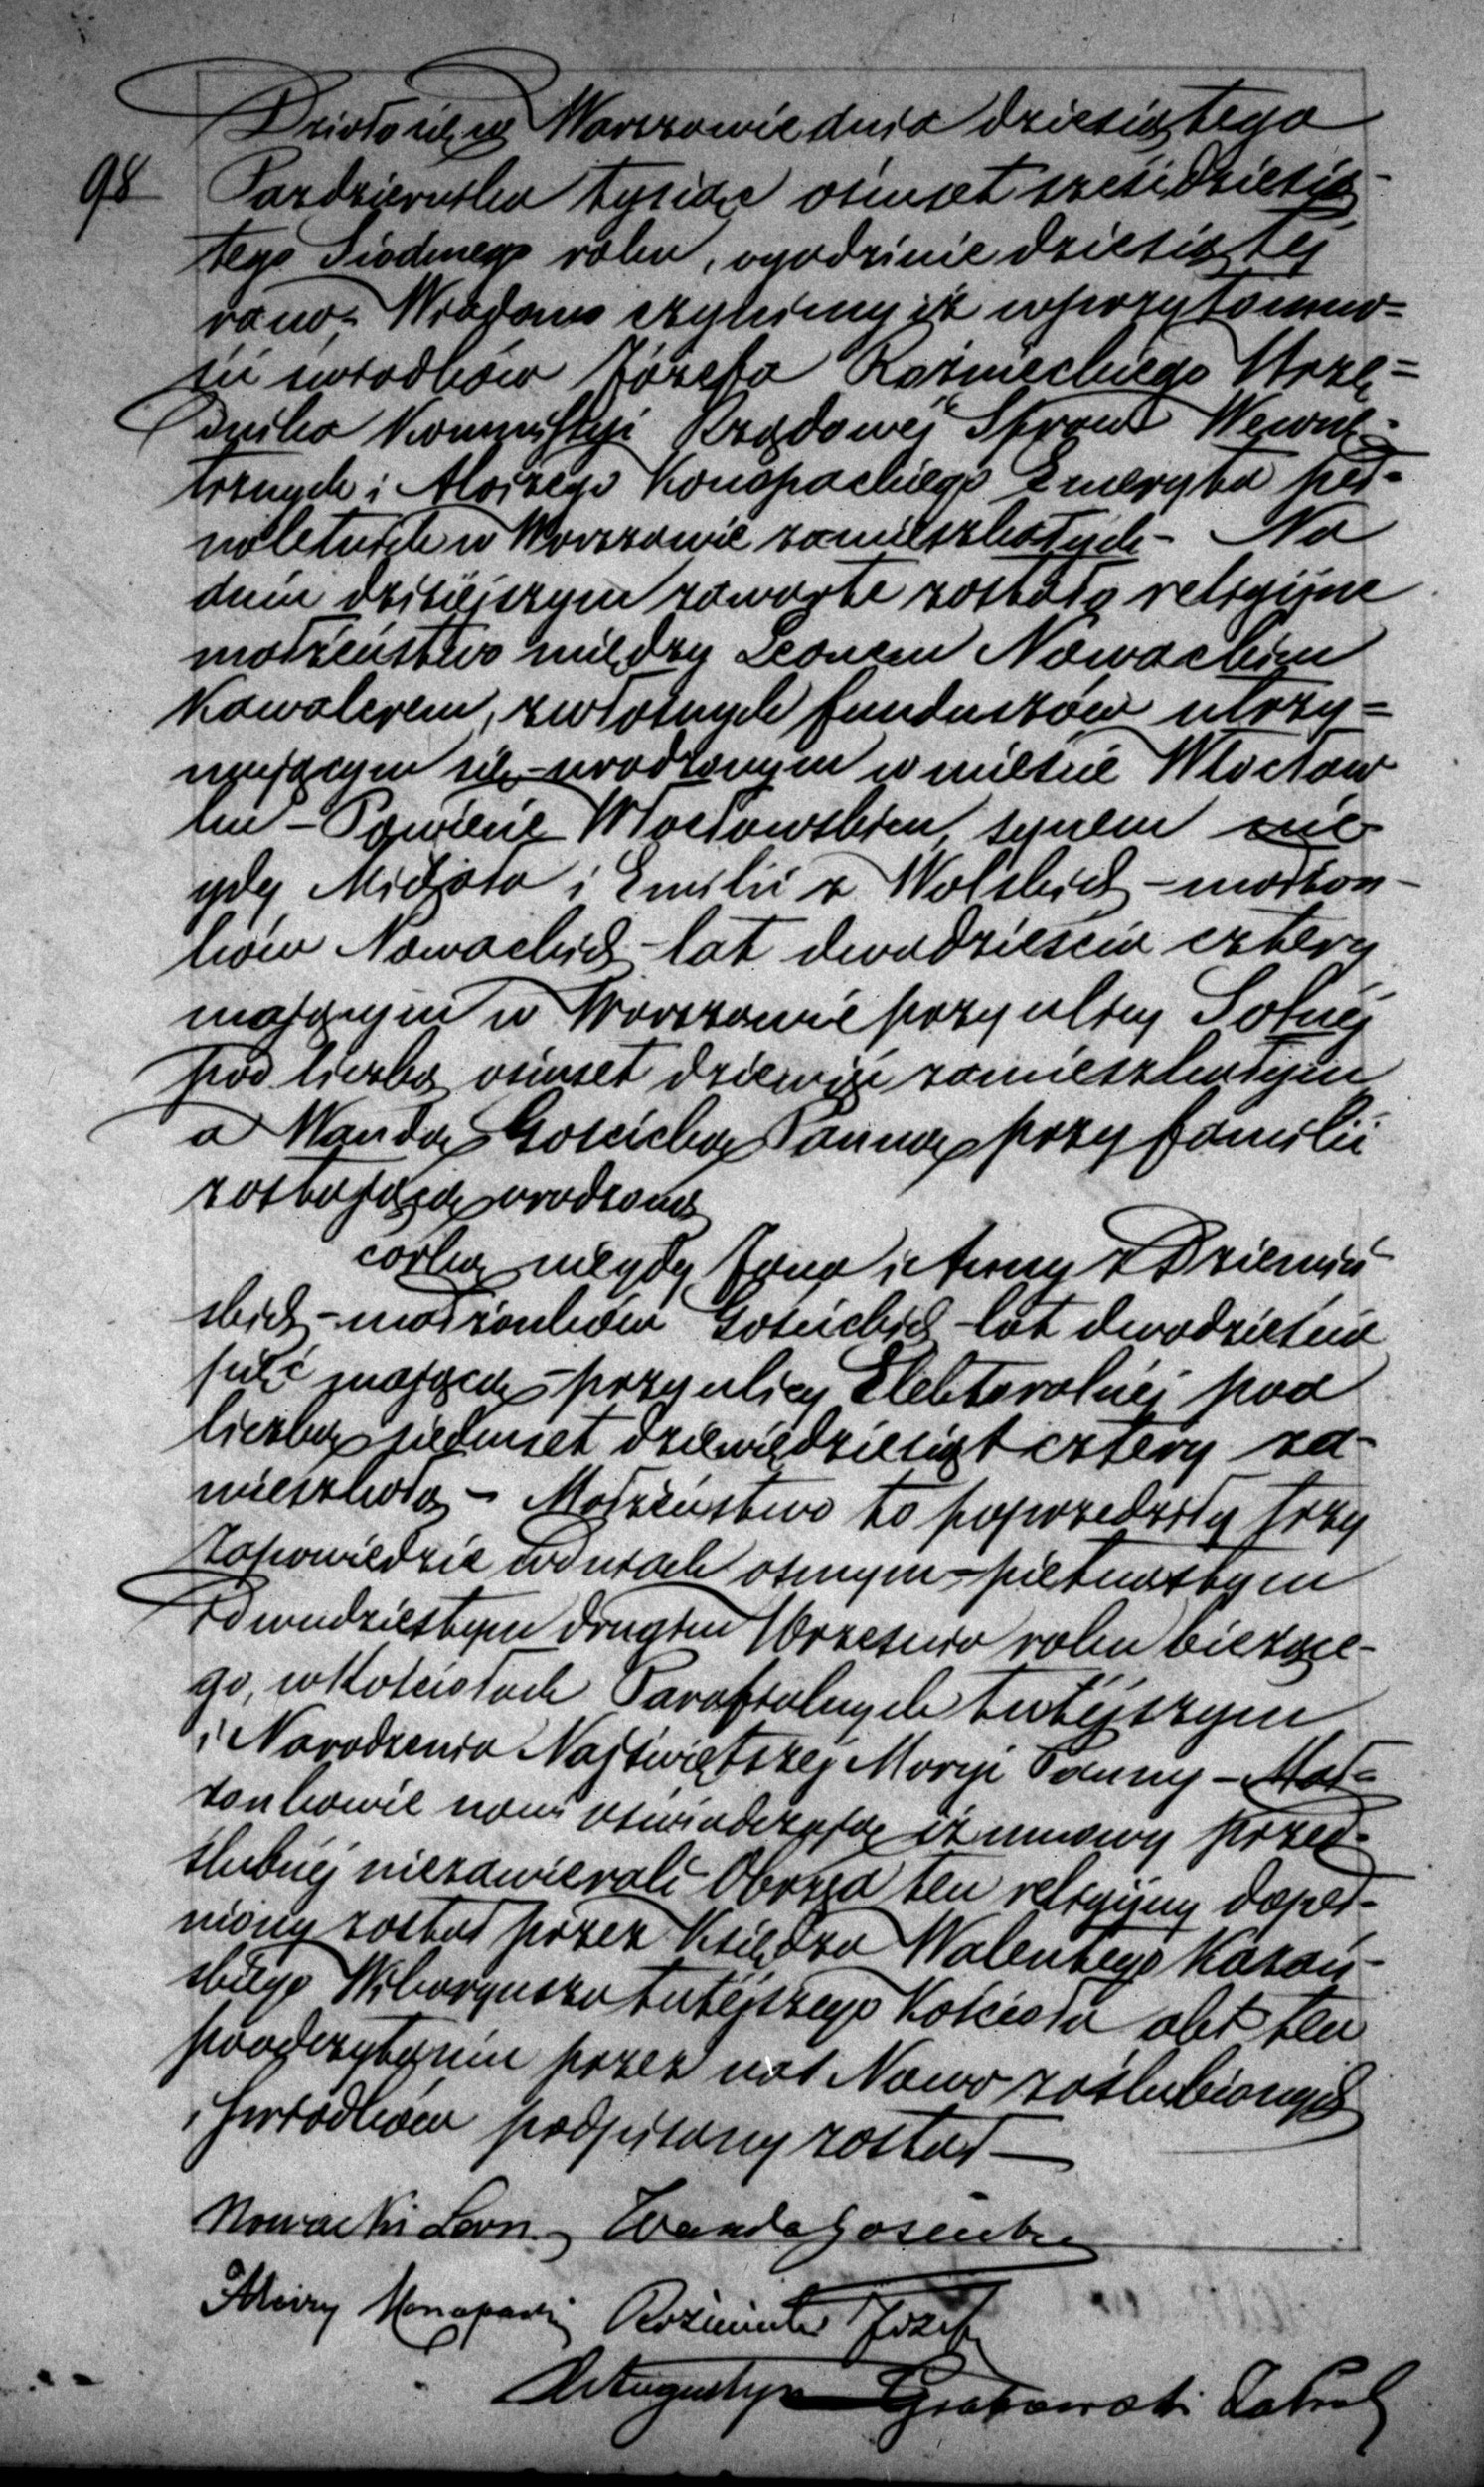 Działo się w Warszawie dnia dziesiątego
98 Pazdziernika tysiąc ośmset sześćdziesią-
tego Siódmego roku, o godzinie dziesiątej
rano,- Wiadomo czyniemy iż w przytomno=
ści świadków Józefa Rozmieckiego Urzę=
dnika Kommissyi Rządowej Spraw Wewnę=
trznych i Aloizego Konopackiego Emeryta peł-
noletnich w Warszawie zamieszkałych - Na
dniu dzisiejszym zawarte zostało religijne
małżeństwo między Leonem Nowackim
Kawalerem, z własnych funduszów utrzy=
mującym się - urodzonym w mieście Włocław
ku - Powiecie Włocławskim, synem nie-
gdy Michała i Emilii z Wolskich - małżon-
ków Nowackich - lat dwadzieścia cztery
mającym w Warszawie przy ulicy Solnej
pod liczbą ośmset dziewięć zamieszkałym
a Wandą Gościcką Panną przy familii
zostającą urodzoną
córką niegdy Jana i Anny z Dziemiń-
skich - małżonków Gościckich - lat dwadzieścia
pięć mającą - przy ulicy Elektoralnej pod
liczbą siedmset dziewięćdziesiąt cztery za-
mieszkałą - Małżeństwo to poprzedziły trzy
Zapowiedzie w dniach ósmym - piętnastym
i dwudziestym drugim Września roku bieżące-
go, w Kościołach Parafialnych tutejszym
i Narodzenia Najświętszej Maryi Panny - Mał=
żonkowie nowi oświadczają iż umowy przed-
ślubnej niezawierali - Obrząd ten religijny dopeł-
niony został przez Księdza Walentego Kasań-
skiego Wikaryusza tutejszego Kościoła akt ten
po odczytaniu przez nas Nowo zaślubionych
i świadków podpisany został —
Nowacki Leon Wanda Gościcka
Aloizy Konopacki Rozmiecki Józef
X Augustyn Grabowski